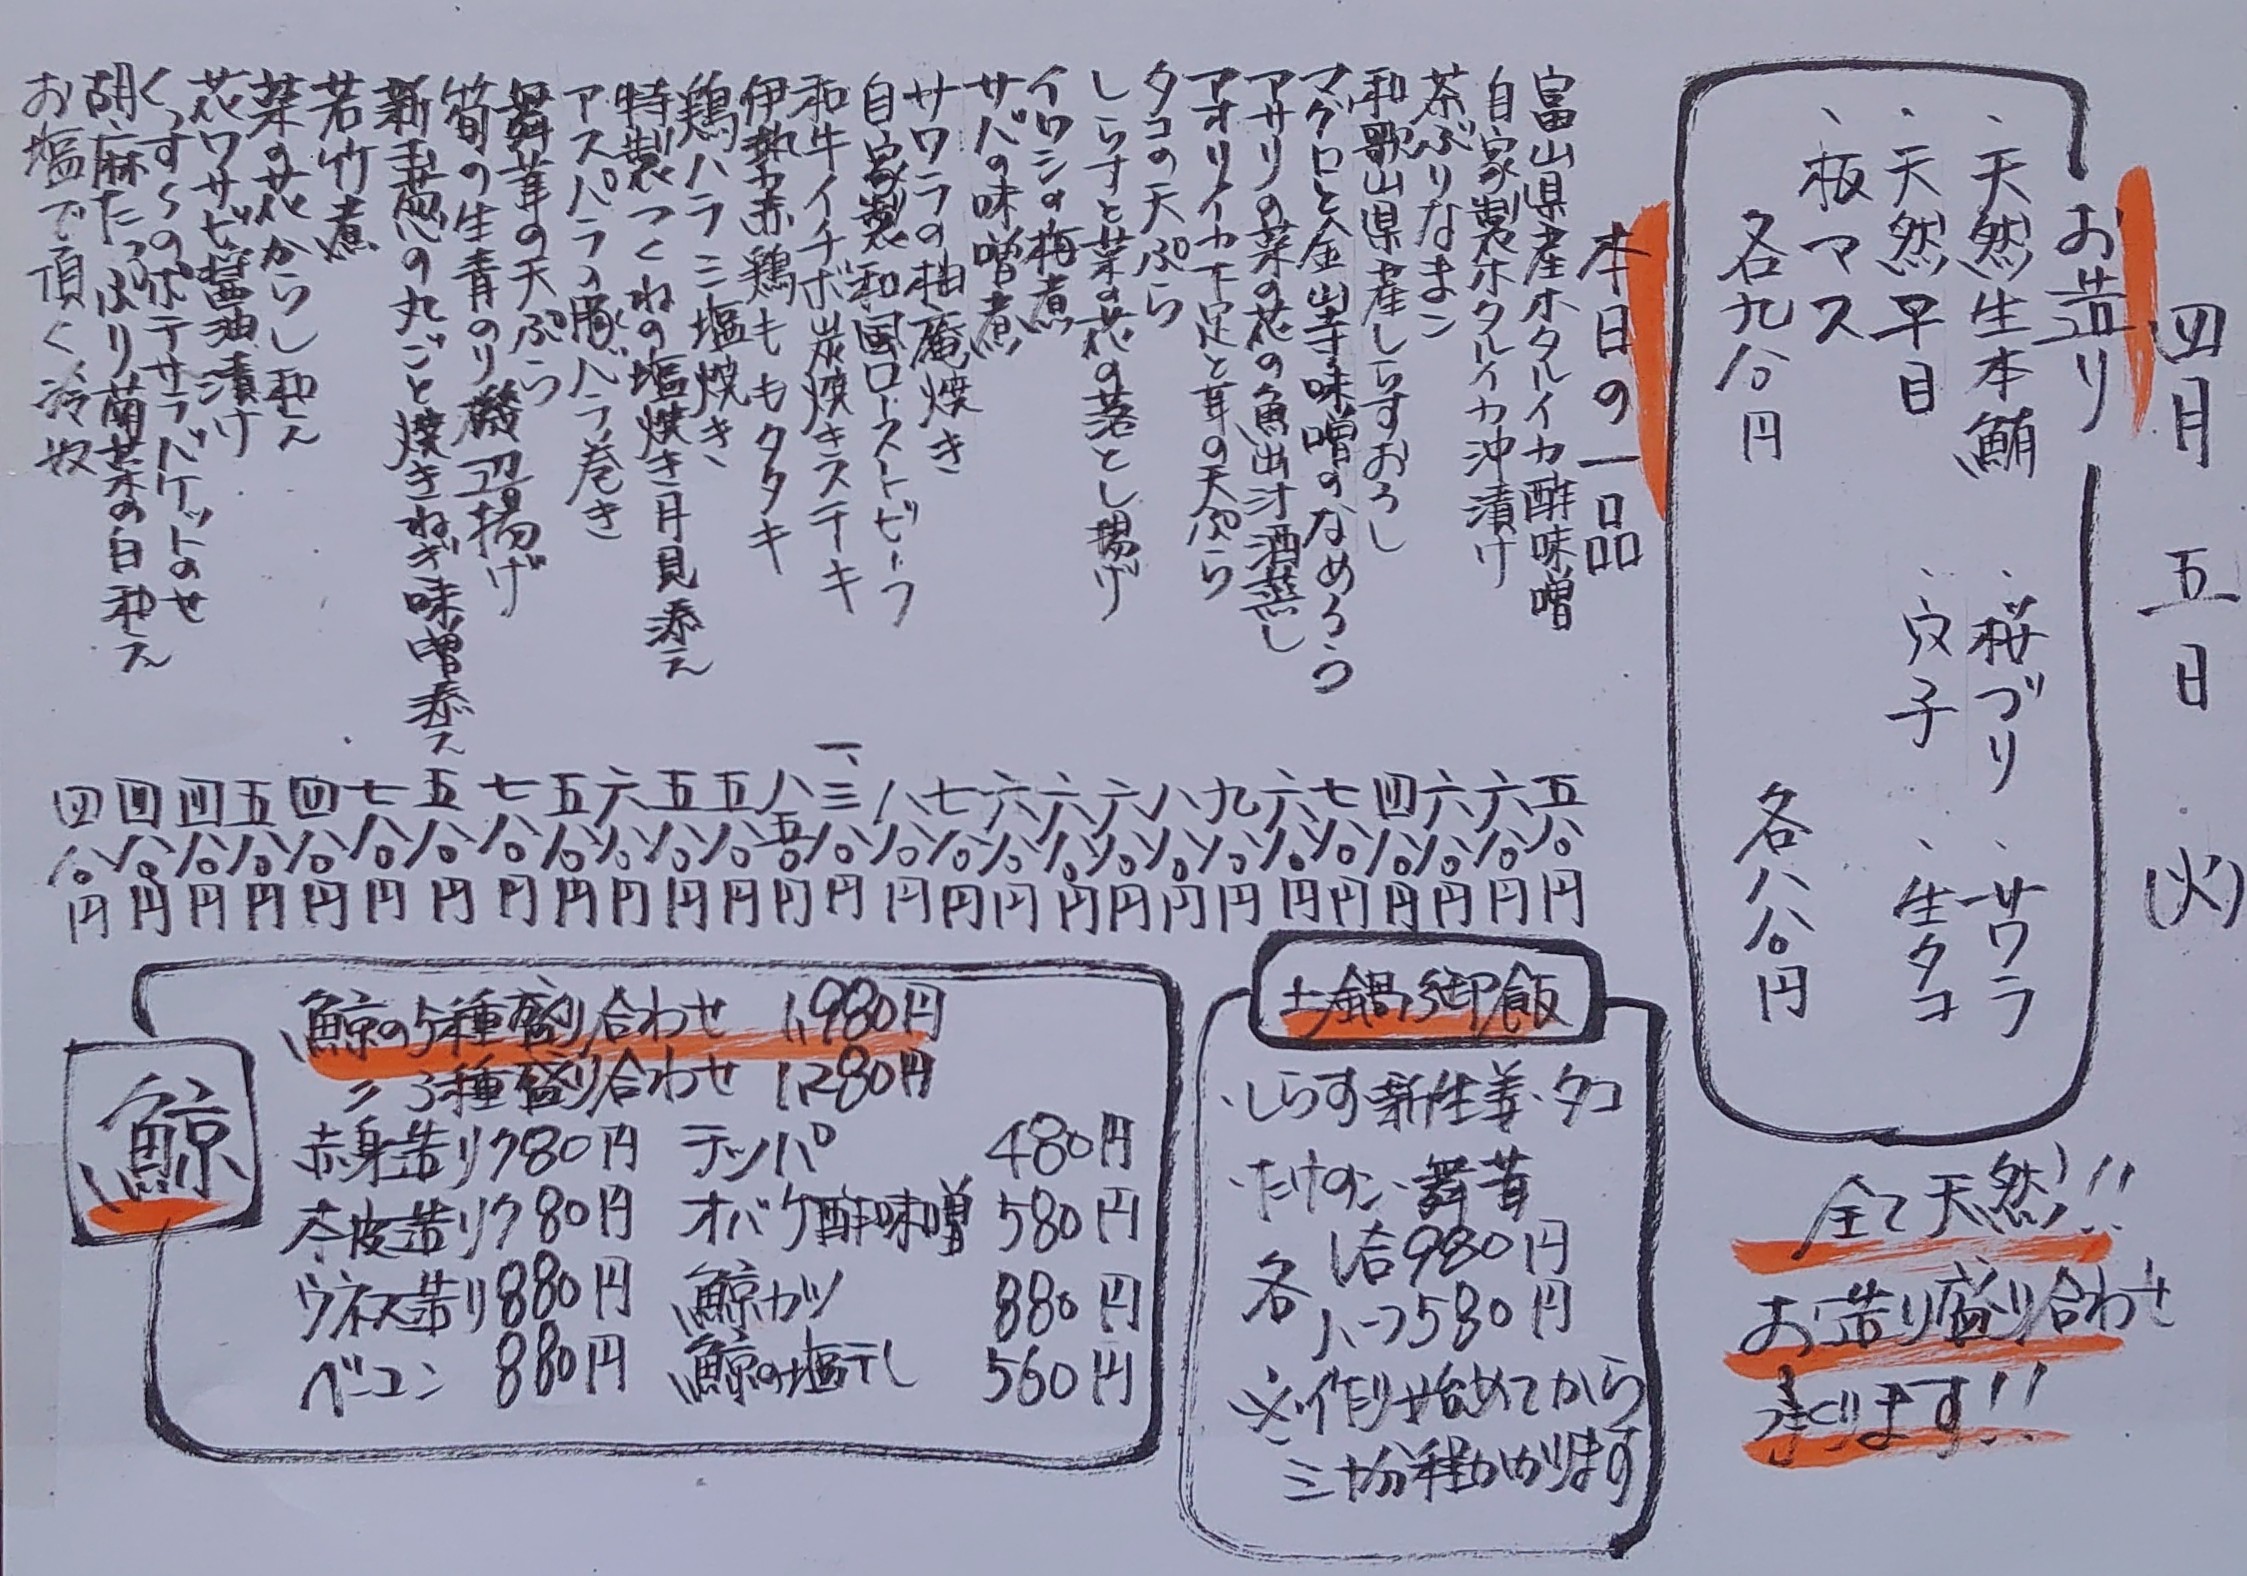 四月五日(火)
お造り
、天然生本鮪 、桜ブリ 、サワラ
、天然平目 、穴子 、生タコ
、板マス
各九〇〇円 各八〇〇円
全て天然!!
お造り盛り合わせ
承ります!!
本日の一品
富山県産ホタルイカ酢味噌 五〇〇円
自家製ホタルイカ沖漬け 六〇〇円
茶ぶりなまこ 六〇〇円
和歌山県産しらすおろし 四〇〇円
マグロと金山寺味噌のなめろう 七〇〇円
アサリの菜の花の魚出汁酒蒸し 六〇〇円
アオリイカ下足と茸の天ぷら 九〇〇円
タコの天ぷら 八〇〇円
しらすと菜の花の落とし揚げ 六〇〇円
イワシの梅煮 六〇〇円
サバの味噌煮 六〇〇円
サワラの柚庵焼き 七〇〇円
自家製和風ローストビーフ 八〇〇円
和牛イチボ炭焼きステーキ 一、三〇〇円
伊勢赤鶏ももタタキ 八五〇円
鶏ハラミ塩焼き 五〇〇円
特製つくねの塩焼き月見添え 五〇〇円
アスパラの豚バラ巻き 六〇〇円
舞茸の天ぷら 五〇〇円
筍の生青のり磯辺揚げ 七〇〇円
新玉葱の丸ごと焼きねぎ味噌添え 五〇〇円
若竹煮 七〇〇円
菜の花からし和え 四〇〇円
花ワサビ醤油漬け 五〇〇円
くっすんのポテサラバケットのせ 四〇〇円
胡麻たっぷり菊菜の白和え 四〇〇円
お塩で頂く冷奴 四〇〇円
土鍋御飯
・しらす・新生姜・タコ
・たけのこ・舞茸
各 1合980円
ハーフ580円
※作り始めてから
三十分程かかります
鯨
鯨の5種盛り合わせ 1,980円
〃 3種盛り合わせ 1,280円
赤身造り 780円 テッパ 480円
本皮造り 780円 オバケ酢味噌 580円
ウネス造り 880円 鯨カツ 880円
ベーコン 880円 鯨の塩干し 560円